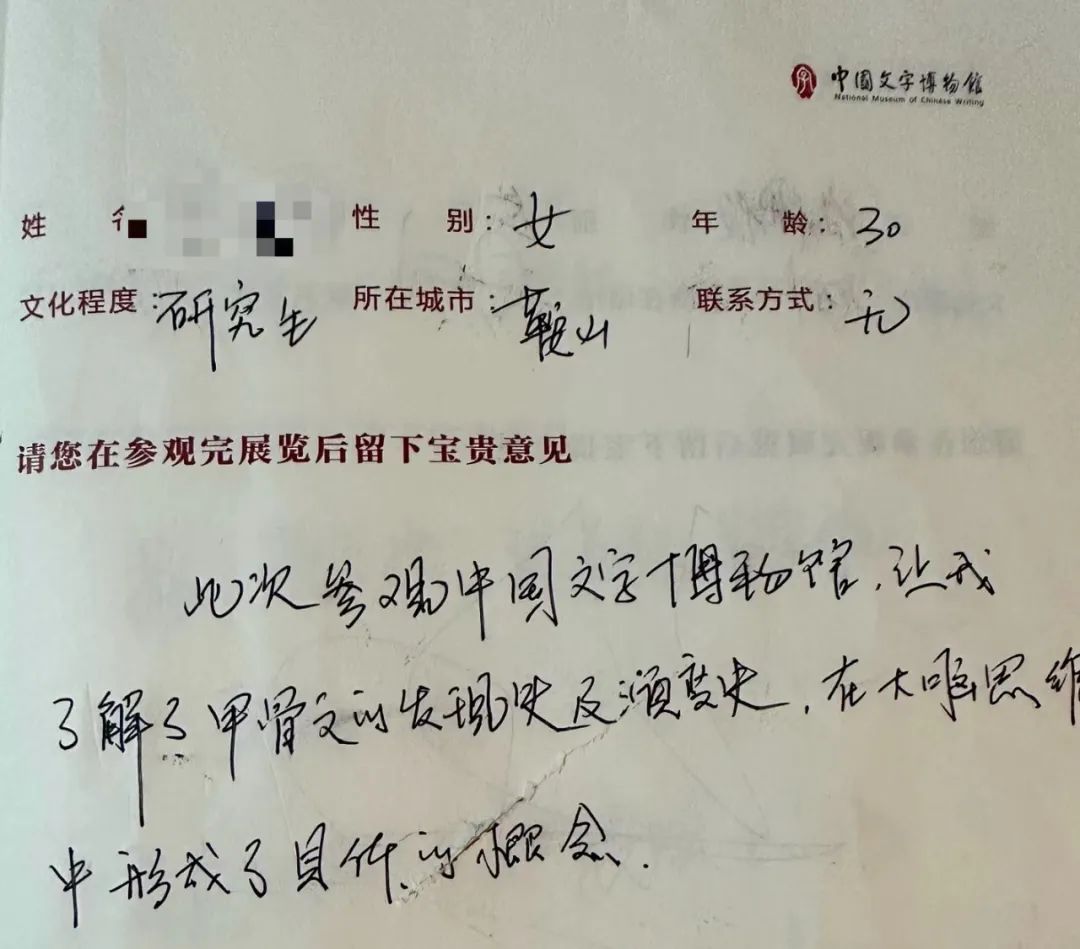 中国文字博物馆
National Museum of Chinese Writing
姓 性 别：女 年 龄：30
文化程度：研究生 所在城市：鞍山 联系方式：无
请您在参观完展览后留下宝贵意见
此次参观中国文字博物馆，让我
了解了甲骨文的发现史及演变史，在大脑思维
中形成了具体的概念.